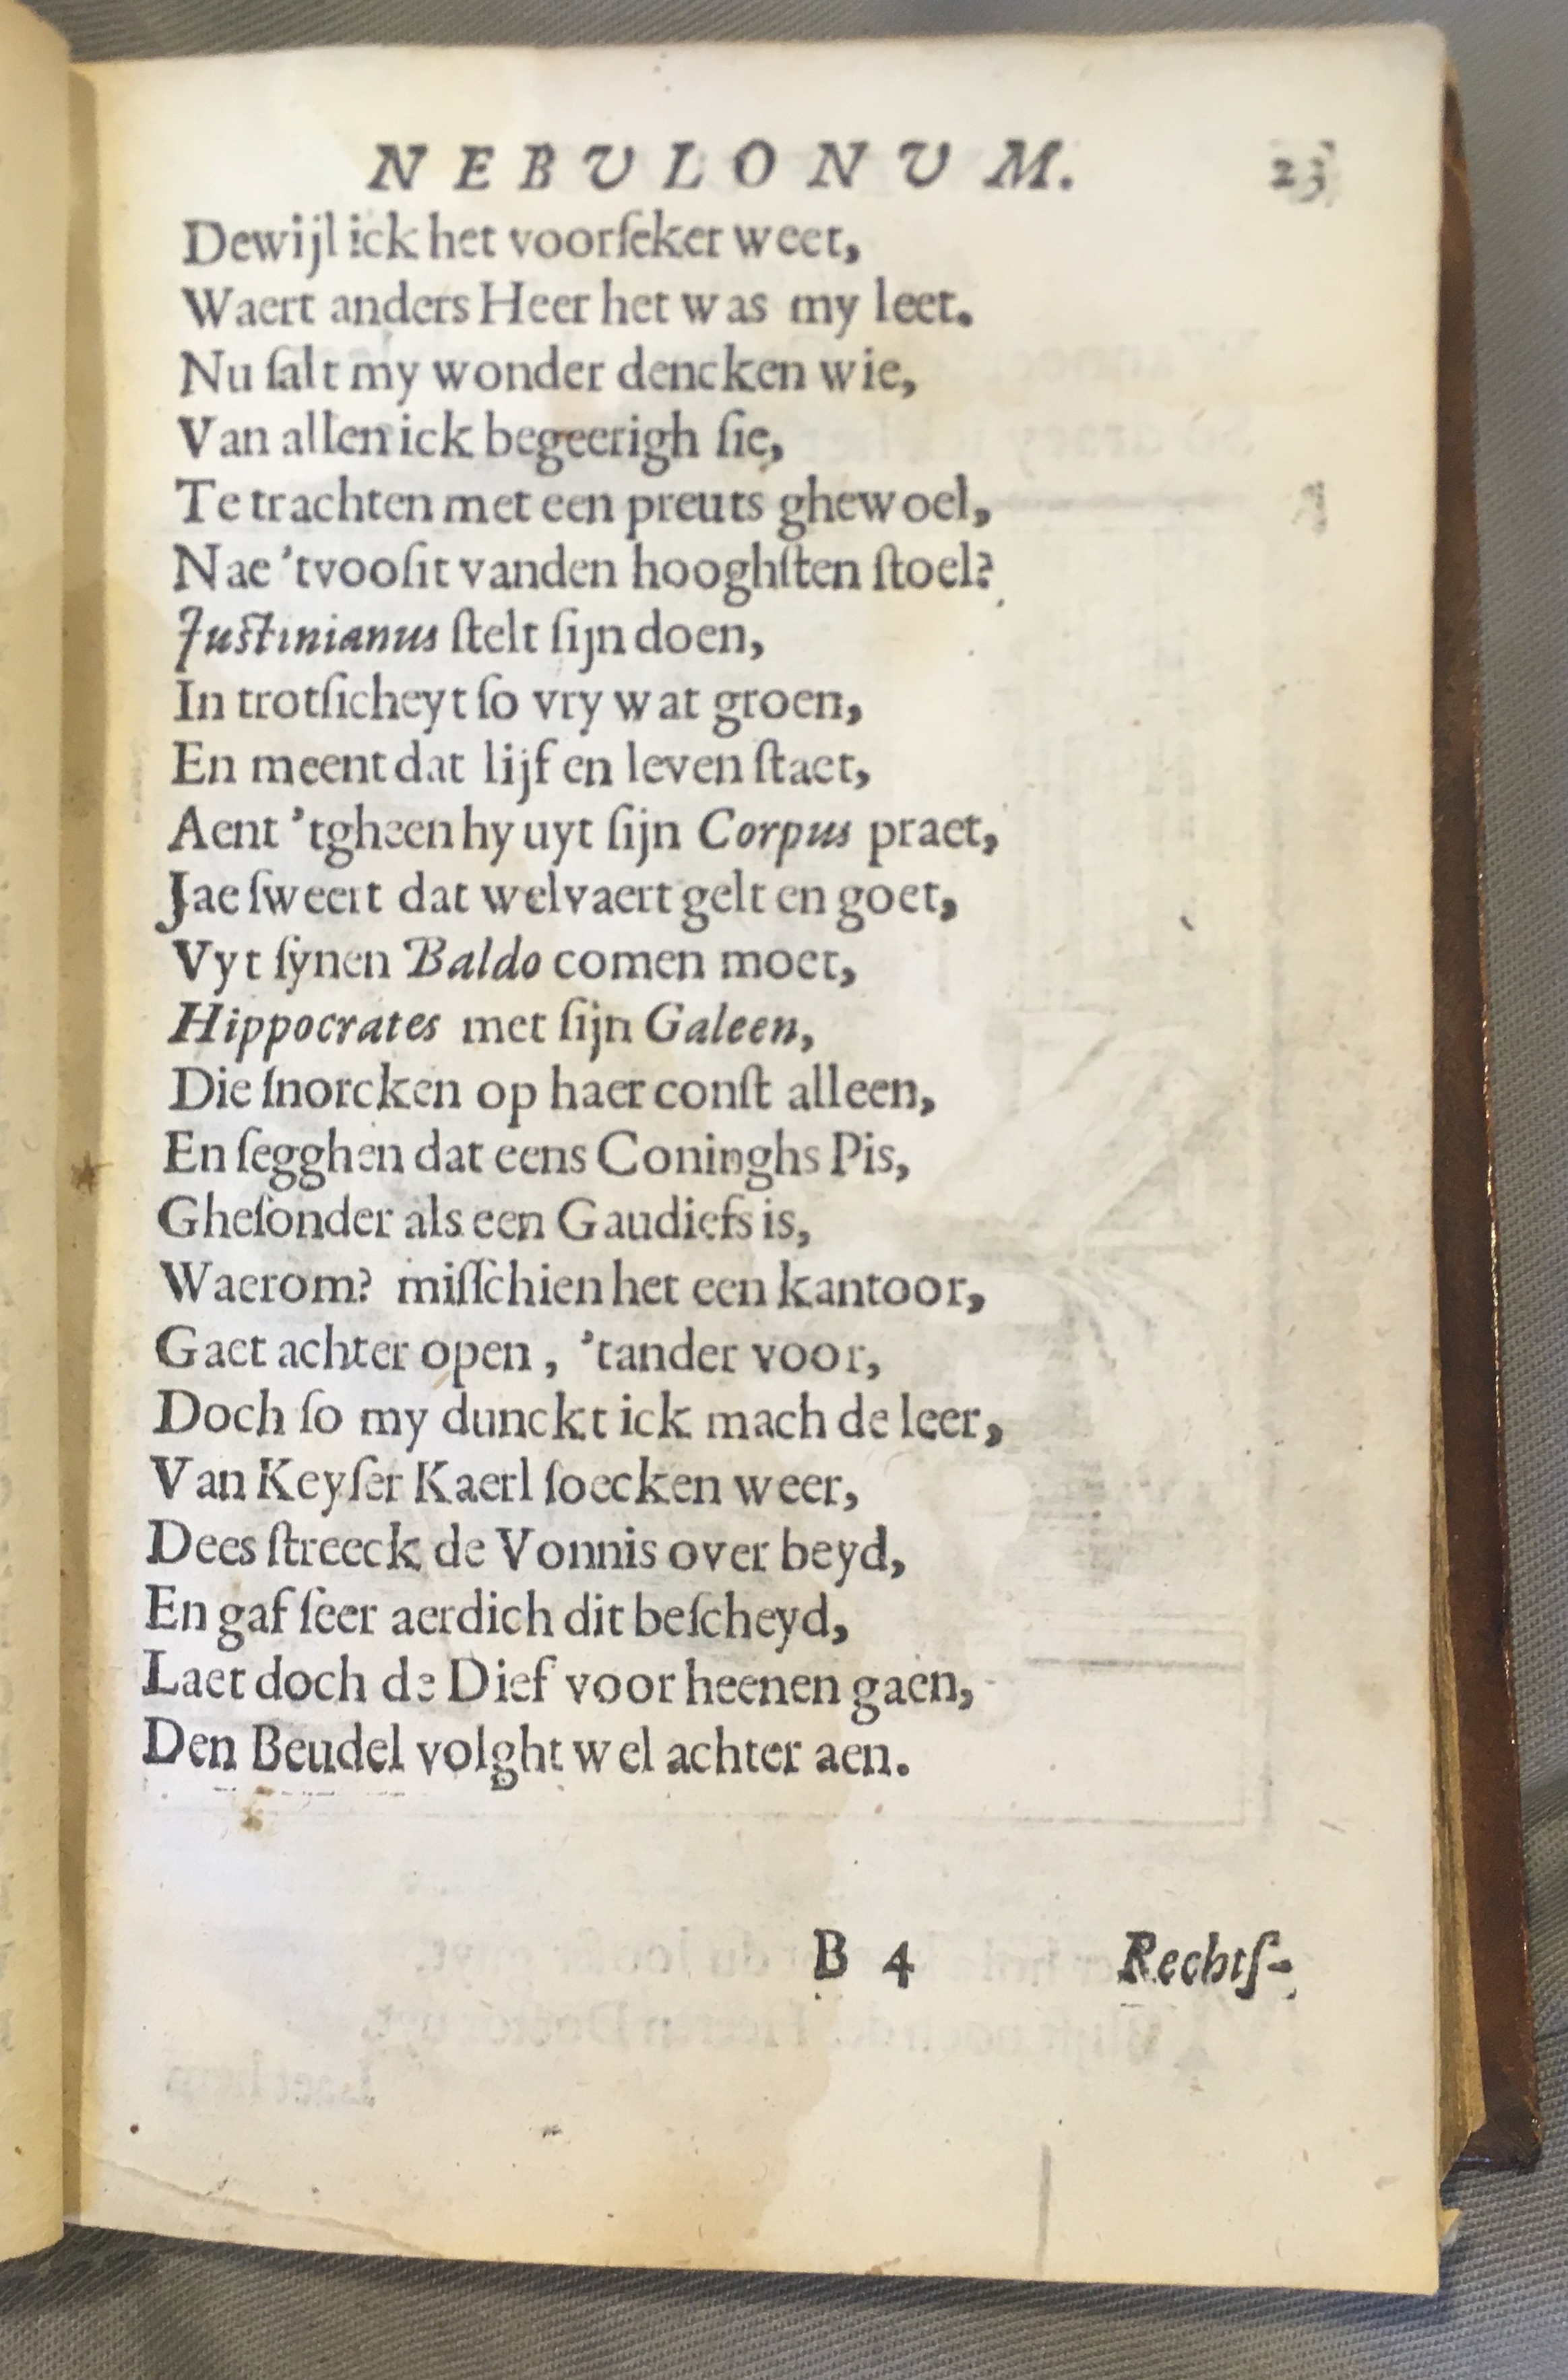 NEBVLONVM. 23
Dewijl ick het voorſeker weet,
Waert anders Heer het was my leet.
Nu ſalt my wonder dencken wie,
Van allen ick begeerigh ſie,
Te trachten met een preuts ghewoel,
Nae 'tvooſit vanden hooghſten ſtoel?
Juſtinianus ſtelt ſijn doen,
In trotſicheyt ſo vry wat groen,
En meent dat lijf en leven ſtaet,
Aent 'tgheen hy uyt ſijn Corpus praet,
Jae ſweert dat welvaert gelt en goet,
Vyt ſynen Baldo comen moet,
Hippocrates met ſijn Galeen,
Die ſnorcken op haer conſt alleen,
En ſegghen dat eens Coninghs Pis,
Gheſonder als een Gaudiefs is,
Waerom? miſſchien het een kantoor,
Gaet achter open, 'tander voor,
Doch ſo my dunckt ick mach de leer,
Van Keyſer Kaerl ſoecken weer,
Dees ſtreeck de Vonnis over beyd,
En gaf ſeer aerdich dit beſcheyd,
Laet doch de Dief voor heenen gaen,
Den Beudel volght wel achter aen.
B 4 Rechtſ-